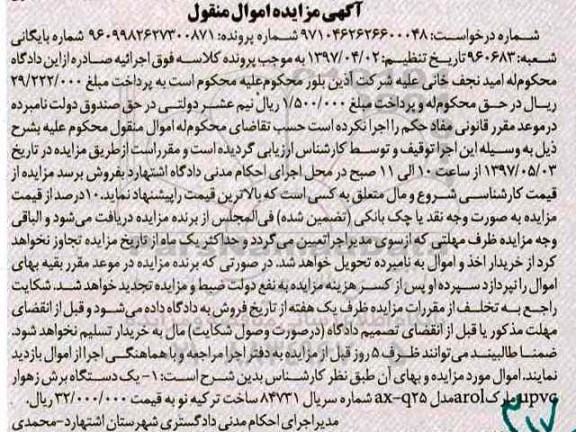 آگهی مزایده اموال منقول
شماره درخواست: ۹۷۱۰۴۶۲۶۲۶۶۰۰۰۴۸ شماره پرونده: ۹۶۰۹۹۸۲۶۲۷۳۰۰۸۷۱ شماره بایگانی
شعبه: ۹۶۰۶۸۳ تاریخ تنظیم: ۱۳۹۷/۰۴/۰۲ به موجب پرونده کلاسه فوق اجرائیه صادره از این دادگاه
محکوم‌له امید نجف خانی علیه شرکت آذین بلور محکوم‌علیه محکوم است به پرداخت مبلغ ۲۹/۲۲۲/۰۰۰
ریال در حق محکوم‌له و پرداخت مبلغ ۱/۵۰۰/۰۰۰ ریال نیم عشر دولتی در حق صندوق دولت نامبرده
در موعد مقرر قانونی مفاد حکم را اجرا نکرده است حسب تقاضای محکوم‌له اموال منقول محکوم علیه بشرح
ذیل به وسیله این اجرا توقیف و توسط کارشناس ارزیابی گردیده است و مقرر است از طریق مزایده در تاریخ
۱۳۹۷/۰۵/۰۳ از ساعت ۱۰ الی ۱۱ صبح در محل اجرای احکام مدنی دادگاه اشتهارد بفروش برسد مزایده از
قیمت کارشناسی شروع و مال متعلق به کسی است که بالاترین قیمت را پیشنهاد نماید. ۱۰درصد از قیمت
مزایده به صورت وجه نقد یا چک بانکی (تضمین شده) فی‌المجلس از برنده مزایده دریافت می‌شود و الباقی
وجه مزایده ظرف مهلتی که از سوی مدیر اجرا تعیین می‌گردد و حداکثر یک ماه از تاریخ مزایده تجاوز نخواهد
کرد از خریدار اخذ و اموال به نامبرده تحویل خواهد شد. در صورتی که برنده مزایده در موعد مقرر بقیه بهای
اموال را نپردازد سپرده او پس از کسر هزینه مزایده به نفع دولت ضبط و مزایده تجدید خواهد شد. شکایت
راجع به تخلف از مقررات مزایده ظرف یک هفته از تاریخ فروش به دادگاه داده می‌شود و قبل از انقضای
مهلت مذکور یا قبل از انقضای تصمیم دادگاه (در صورت وصول شکایت) مال به خریدار تسلیم نخواهد شود.
ضمنا طالبیند می‌توانند ظرف ۵ روز قبل از مزایده به دفتر اجرا مراجعه و با هماهنگی اجرا از اموال بازدید
نمایند. اموال مورد مزایده و بهای آن طبق نظر کارشناس بدین شرح است: ۱- یک دستگاه برش زهوار
upvc مارک arol مدل ax-q۲۵ شماره سریال ۸۴۷۳۱ ساخت ترکیه نو به قیمت ۳۲/۰۰۰/۰۰۰ ریال.
مدیر اجرای احکام مدنی دادگستری شهرستان اشتهارد-محمدی